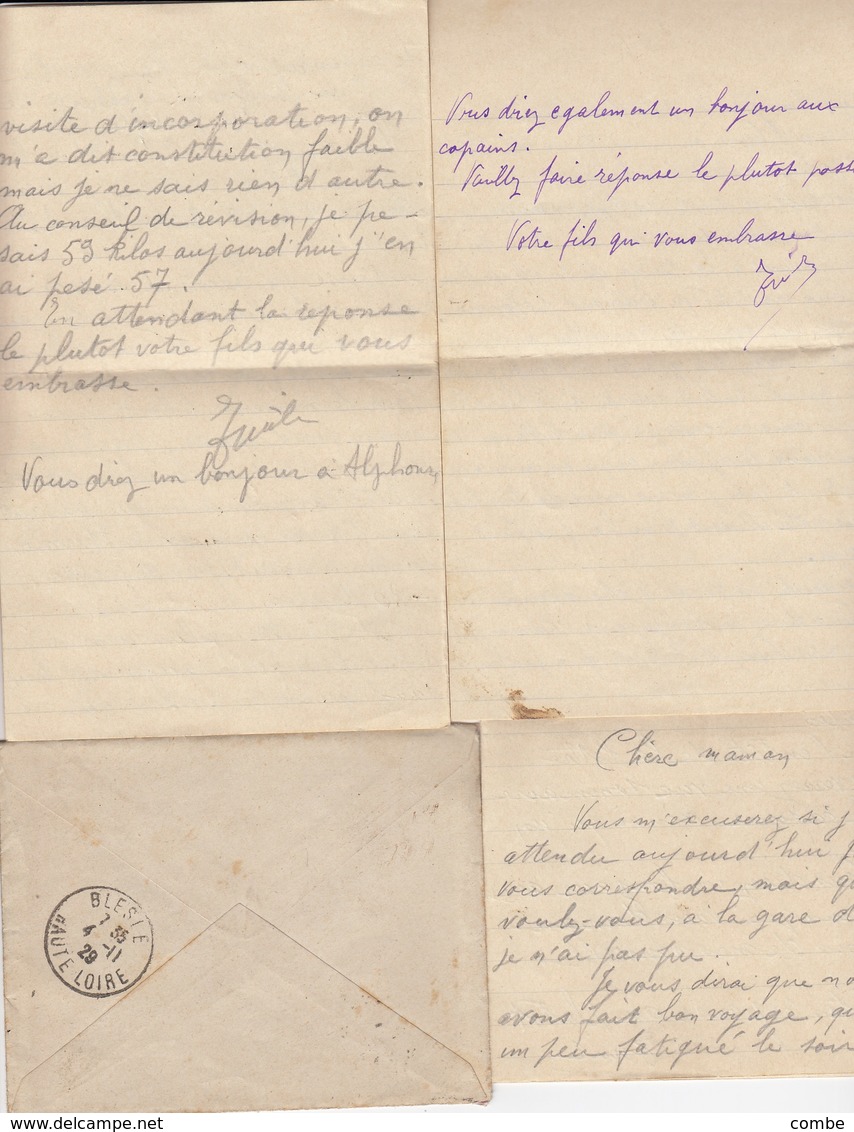 visite d'incorporation, on
m'a dit constitution faible
mais je ne sais rien d'autre.
Au conseil de révision, je pe-
sais 59 kilos aujourd'hui j'en
ai pesé 57.
En attendant la réponse
le plutot votre fils qui vous
embrasse.
Vous direz un bonjour à Alphonse
Vous direz egalement un bonjour aux
copains.
faire réponse le plutot poss
Votre fils qui vous embrasse
Chère maman
Vous m'excuserez si j
attendu aujourd'hui p
vous correspondre, mais qu
voulez-vous, à la gare d
je n'ai pas pu.
Je vous dirai que no
avons fait bon voyage, qu
un peu fatigué le soir
BLESLE
7 35
4 -11
29
HAUTE LOIRE
www.delcampe.net
combe